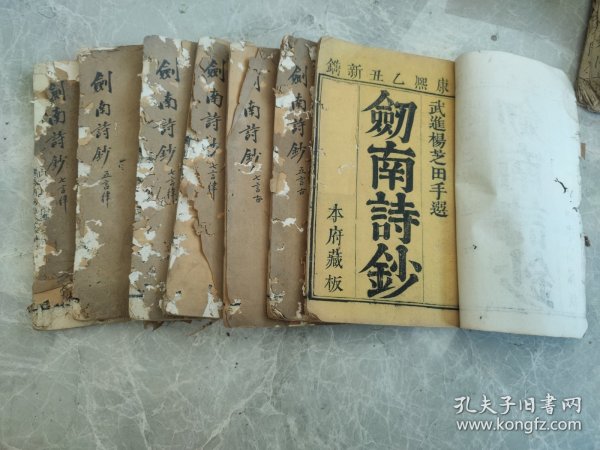 康熙乙丑新鐫
武進楊芝田手選
劒南詩鈔
本府藏板
劍南詩鈔 五言古
南詩鈔 七言古
劍南詩鈔 七言律
劍南詩鈔 七言律
劍南詩鈔 五言律
劍南詩鈔 七言律
孔夫子旧书网
www.kongfz.com